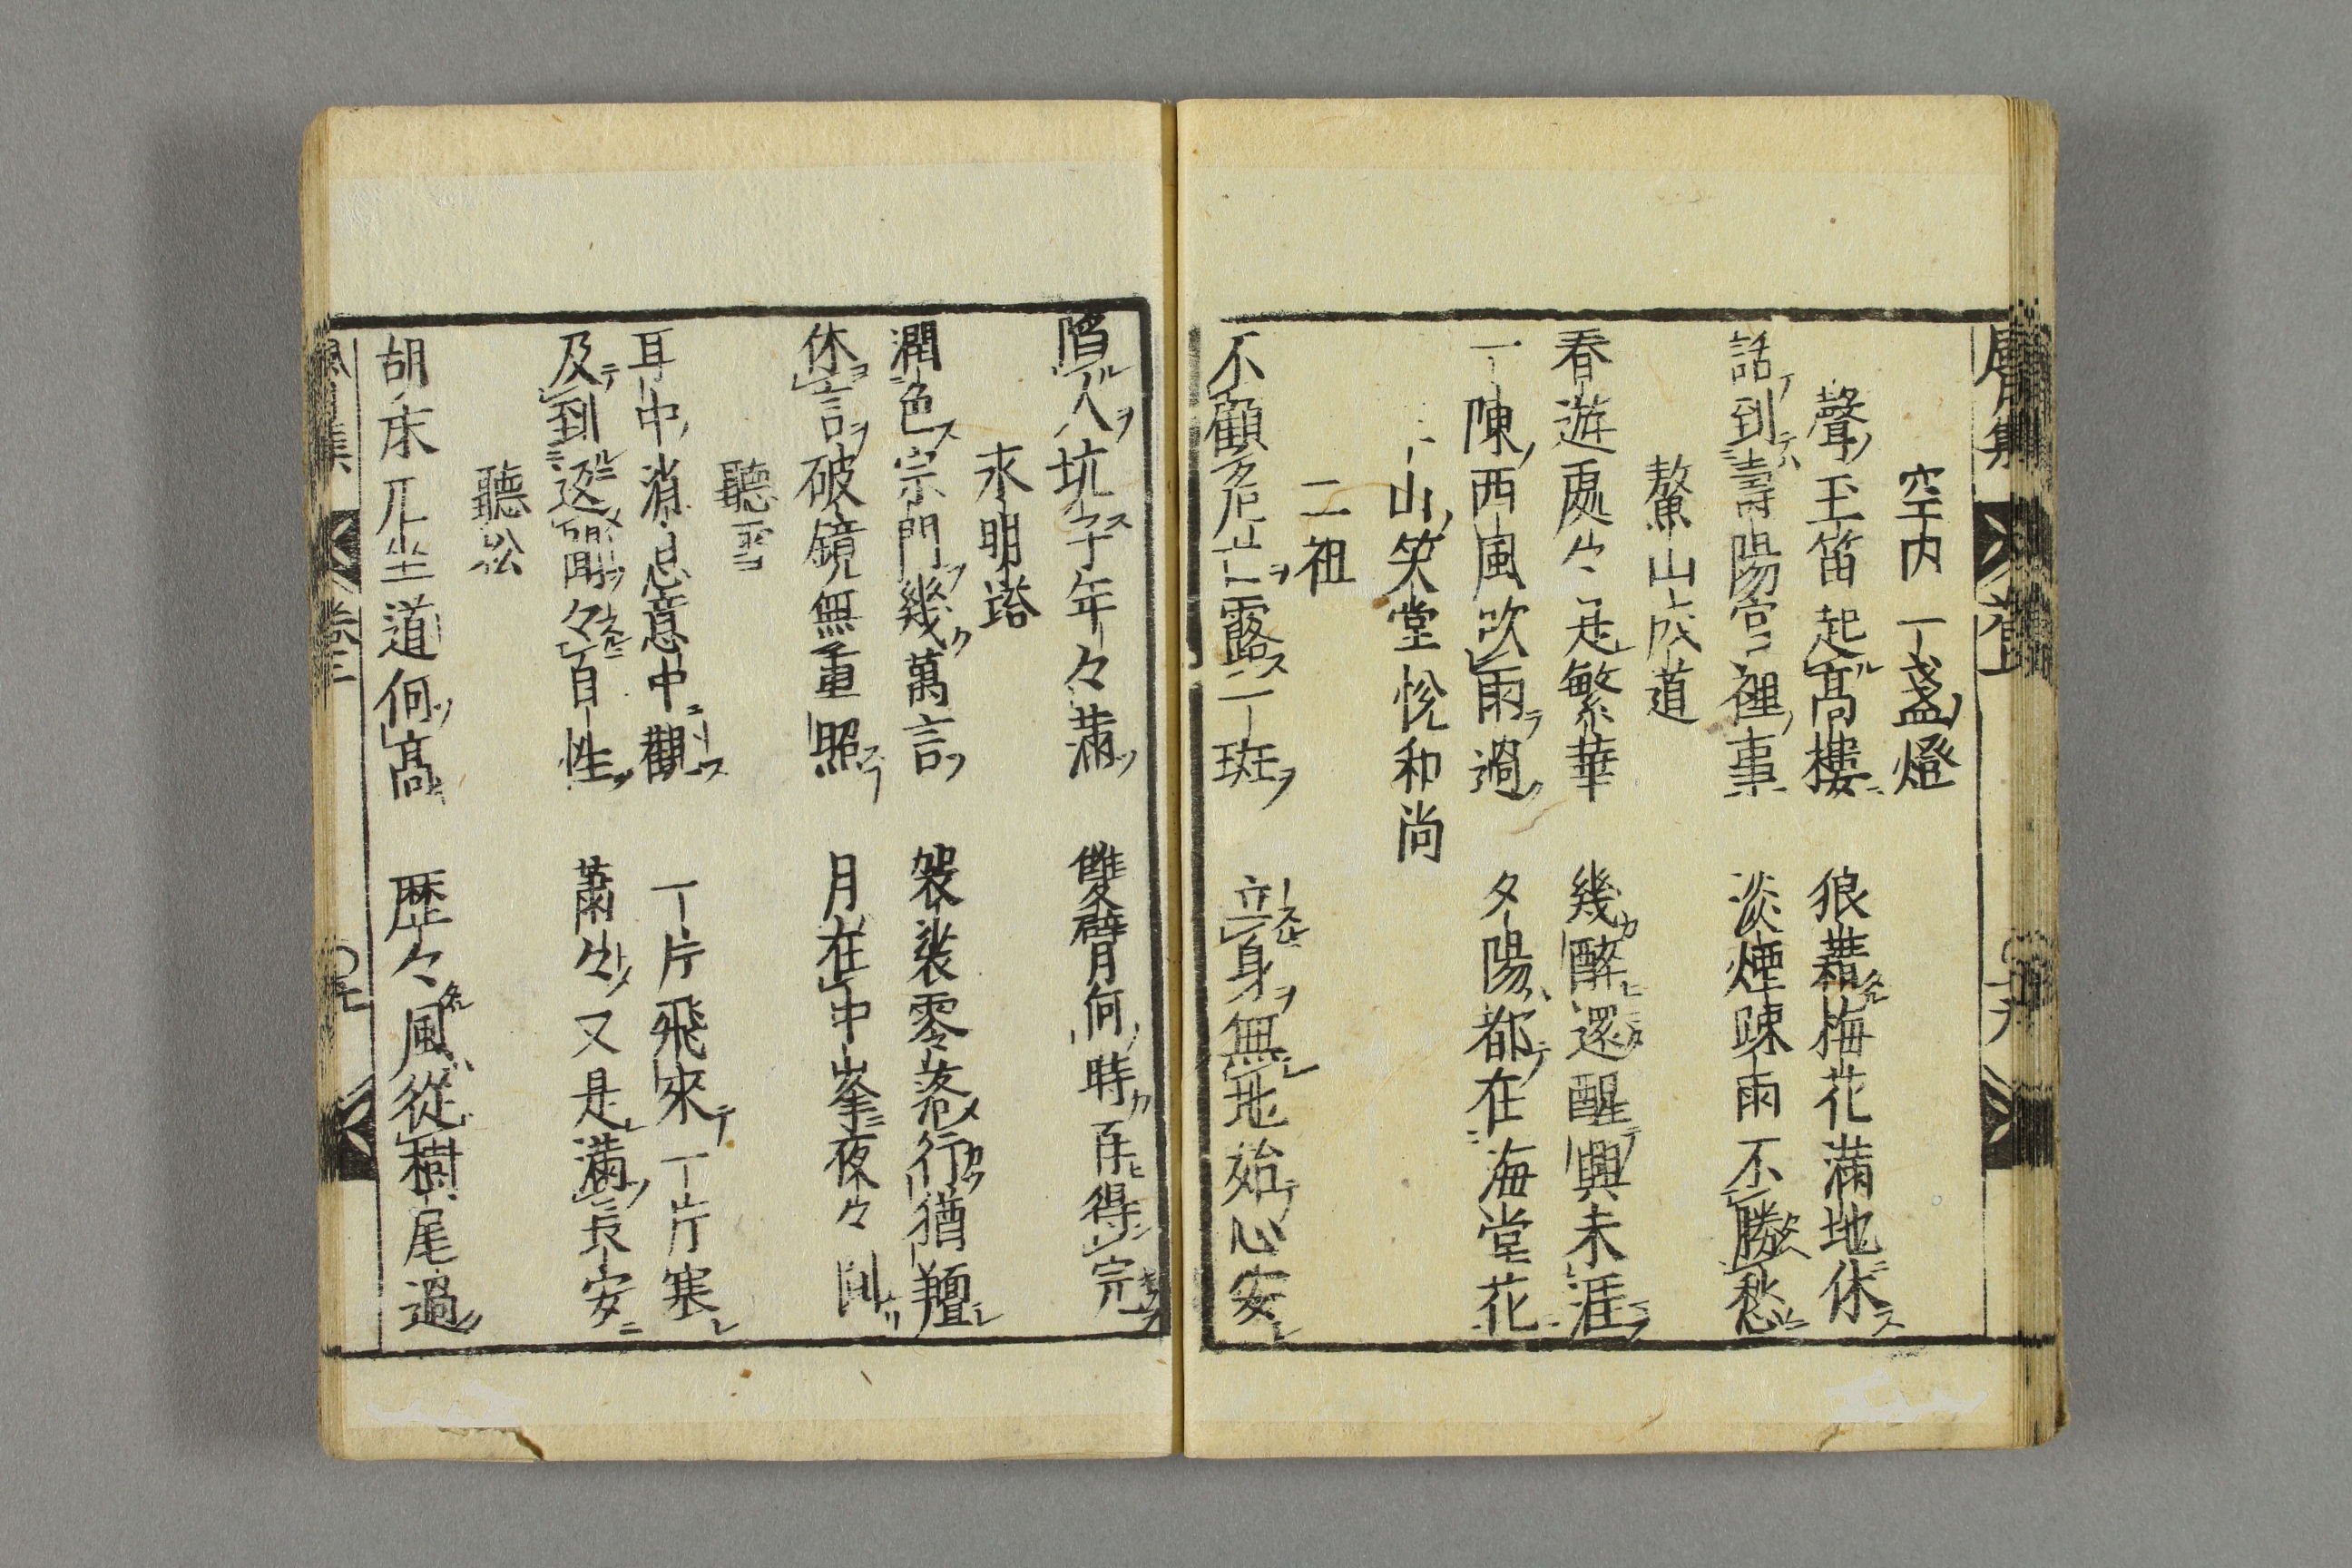 空内一盞燈
聲玉笛起高樓 狼藉梅花滿地休
話到壽陽宮裡事 淡煙疎雨不勝愁
鰲山成道
春遊處々是繁華 幾醉還醒興未涯
一陳西風吹雨過 夕陽都在海堂花
山笑堂悅和尚
二祖
不顧危亡露一斑 立身無地始心安
陷人坑子年々滿 雙臂何時再得完
永明塔
潤色宗門幾萬言 袈裟零落行猶羶
休言破鏡無重照 月在中峯夜々圓
聽雪
耳中消息意中觀 一片飛來一片寒
及到返聞々自性 蕭々又是滿長安
聽松
胡床兀坐道何高 歷々風從樹尾過
卷三